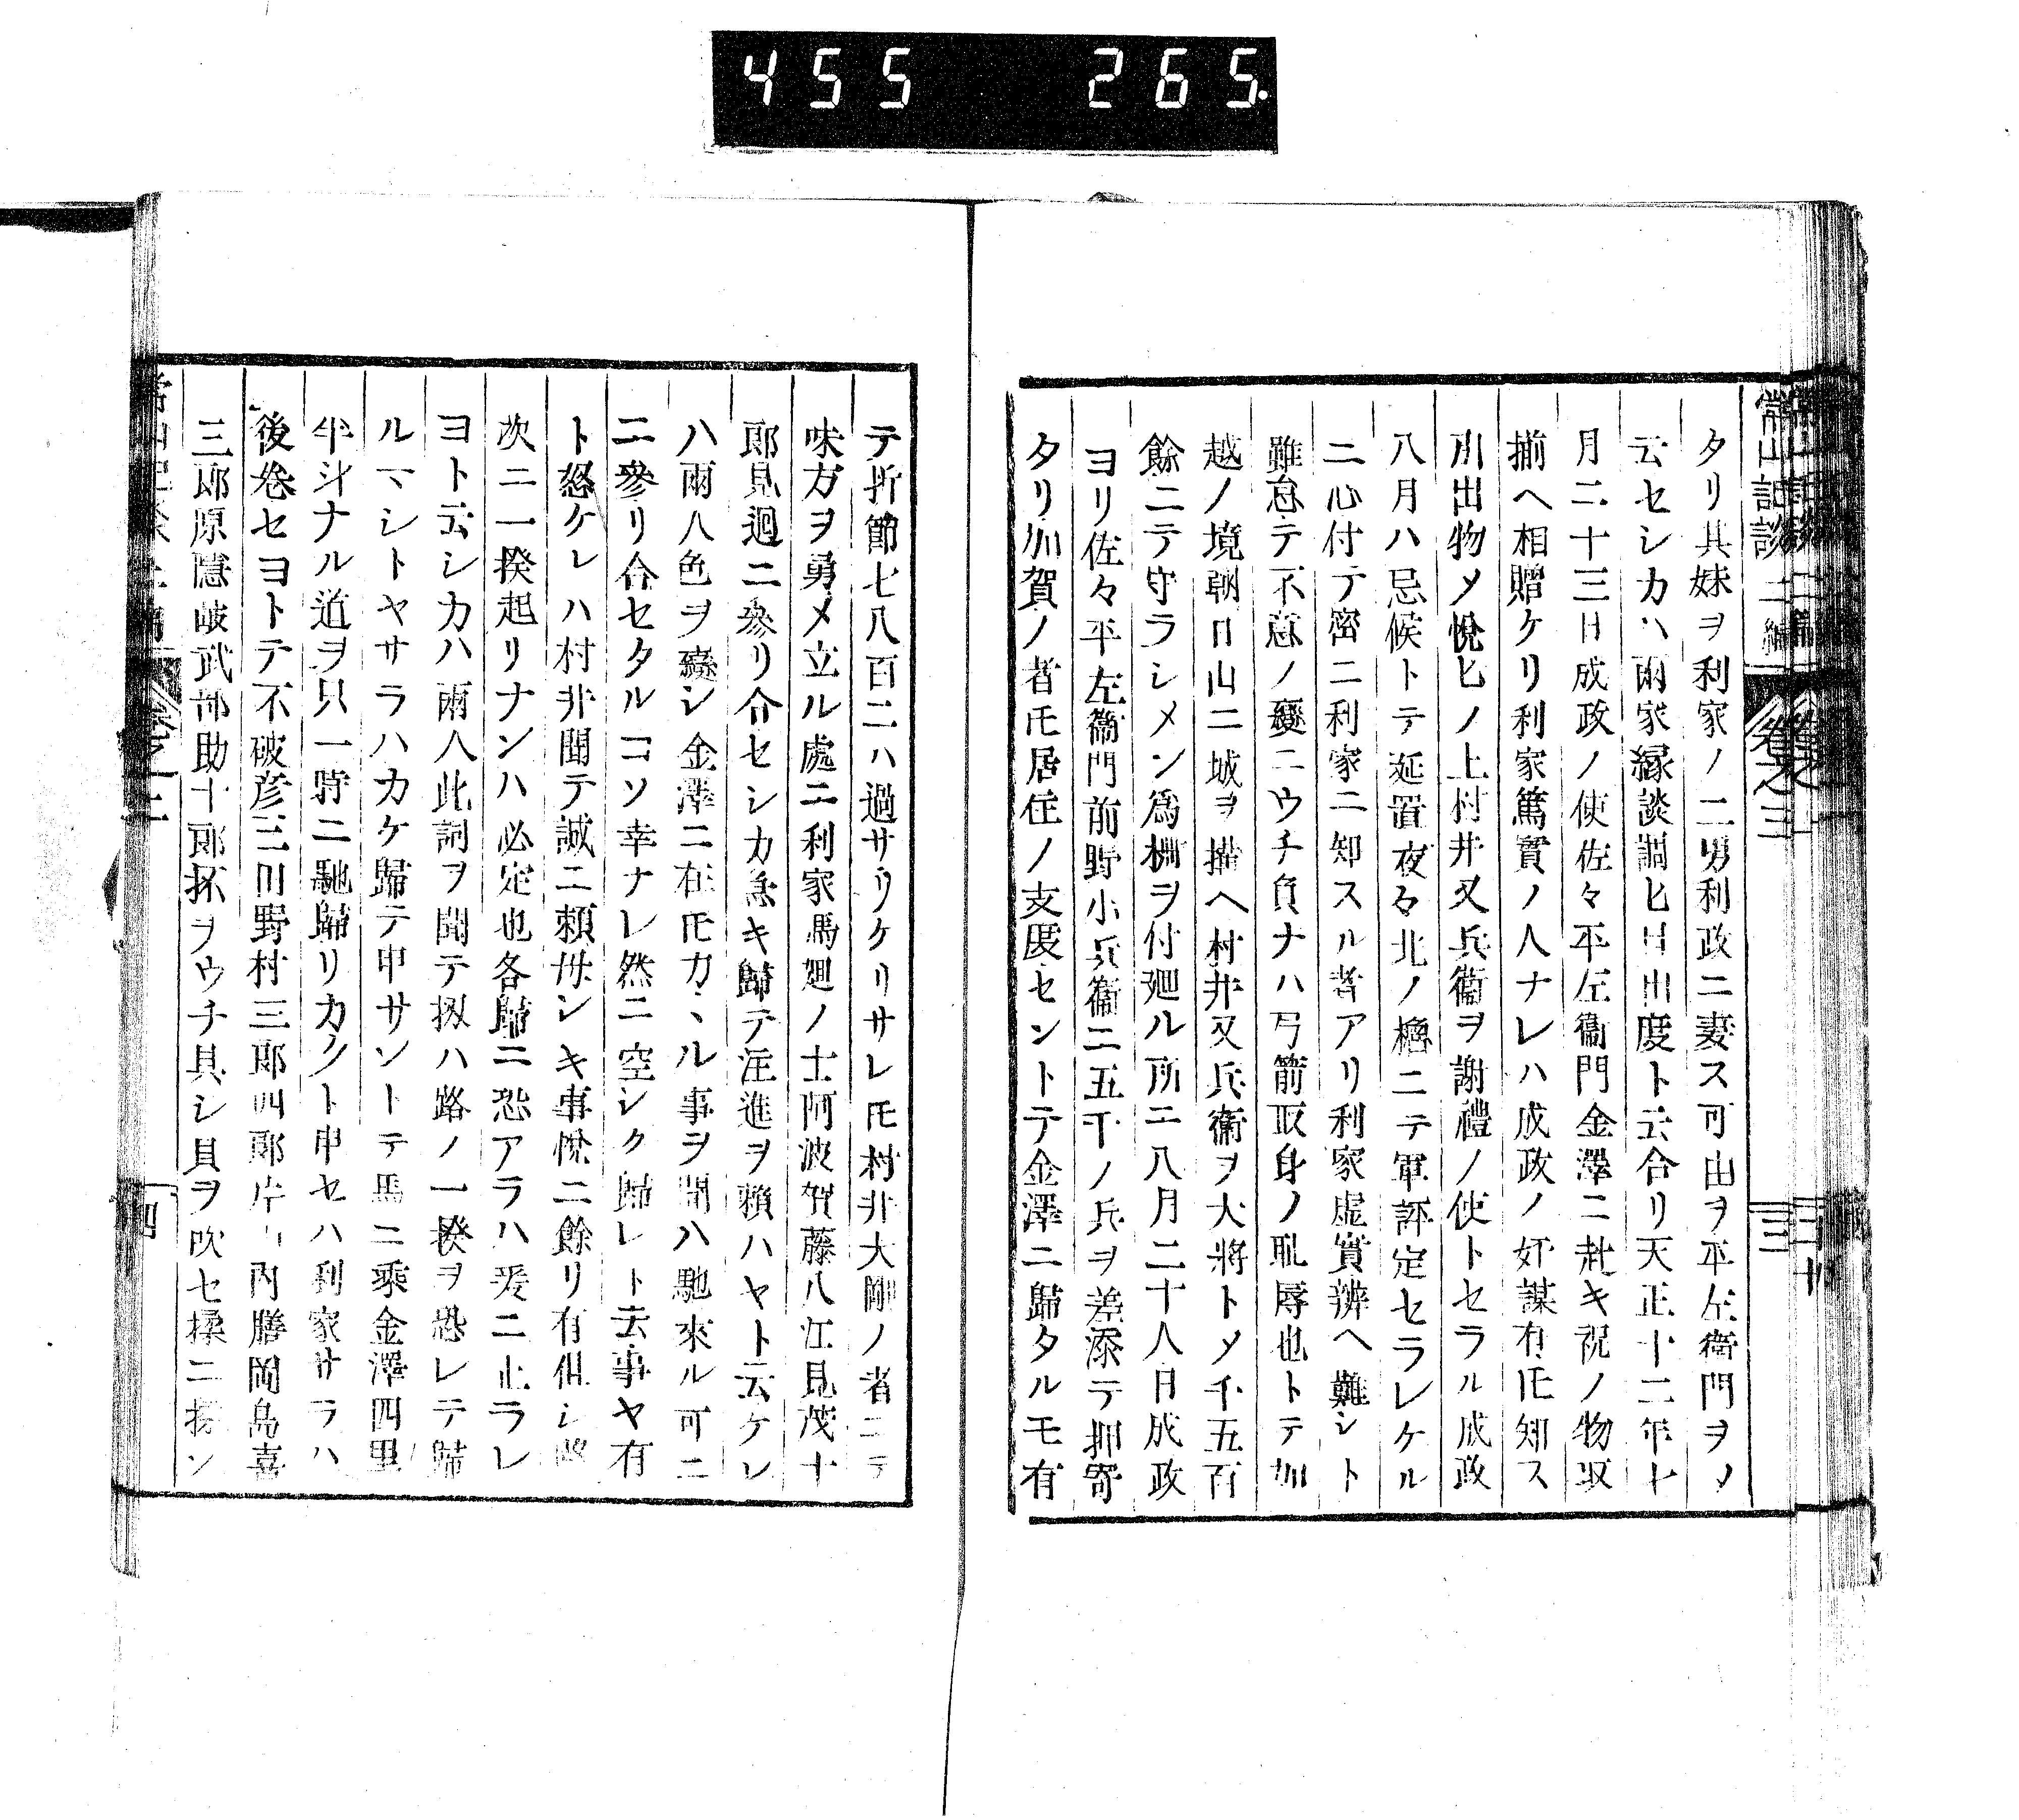 455 265.
常山記談 二編 卷之三 三
タリ其妹ヲ利家ノ二男利政ニ妻ス可由ヲ平左衞門ヲメ
云セシカハ兩家縁談調ヒ目出度ト云合リ天正十二年七
月二十三日成政ノ使佐々平左衞門金澤ニ赴キ祝ノ物取
揃ヘ相贈ケリ利家篤實ノ人ナレハ成政ノ奸謀有𪜈知ス
引出物メ悅ヒノ上村井又兵衞ヲ謝禮ノ使トセラル成政
八月ハ忌候トテ延置夜々北ノ櫓ニテ軍評定セラレケル
ニ心付テ密ニ利家ニ知スル者アリ利家虚實辨ヘ難シト
雖怠テ不意ノ變ニウチ負ナハ弓箭取身ノ耻辱也トテ加
越ノ境朝日山ニ城ヲ搆ヘ村井又兵衞ヲ大將トメ千五百
餘ニテ守ラシメン爲柵ヲ付廻ル所ニ八月二十八日成政
ヨリ佐々平左衞門前野小兵衞ニ五千ノ兵ヲ差添テ押寄
タリ加賀ノ者𪜈居住ノ支度セントテ金澤ニ歸タルモ有
テ折節七八百ニハ過サリケリサレ𪜈村井大剛ノ者ニテ
味方ヲ勇メ立ル處ニ利家馬廻ノ士阿波賀藤八江見茂十
郎見廻ニ參リ合セシカ急キ歸テ注進ヲ頼ハヤト云ケレ
ハ兩人色ヲ變シ金澤ニ在𪜈カヽル事ヲ聞ハ馳來ル可ニ
ニ參リ合セタルコソ幸ナレ然ニ空シク歸レト云事ヤ有
ト怒ケレハ村井聞テ誠ニ頼母シキ事悅ニ餘リ有但シ
次ニ一揆起リナンハ必定也各歸ニ恐アラハ爰ニ止ラレ
ヨト云シカハ兩人此詞ヲ聞テ扨ハ路ノ一揆ヲ恐レテ歸
ルマシトヤサラハカケ歸テ申サントテ馬ニ乘金澤四里
半計ナル道ヲ只一時ニ馳歸リカクト申セハ利家サラハ
後卷セヨトテ不破彦三田野村三郎四郎片山内膳岡島喜
三郎原隱岐武部助十郎抔ヲウチ具シ貝ヲ吹セ揉ニ揉ン
卷之三 四